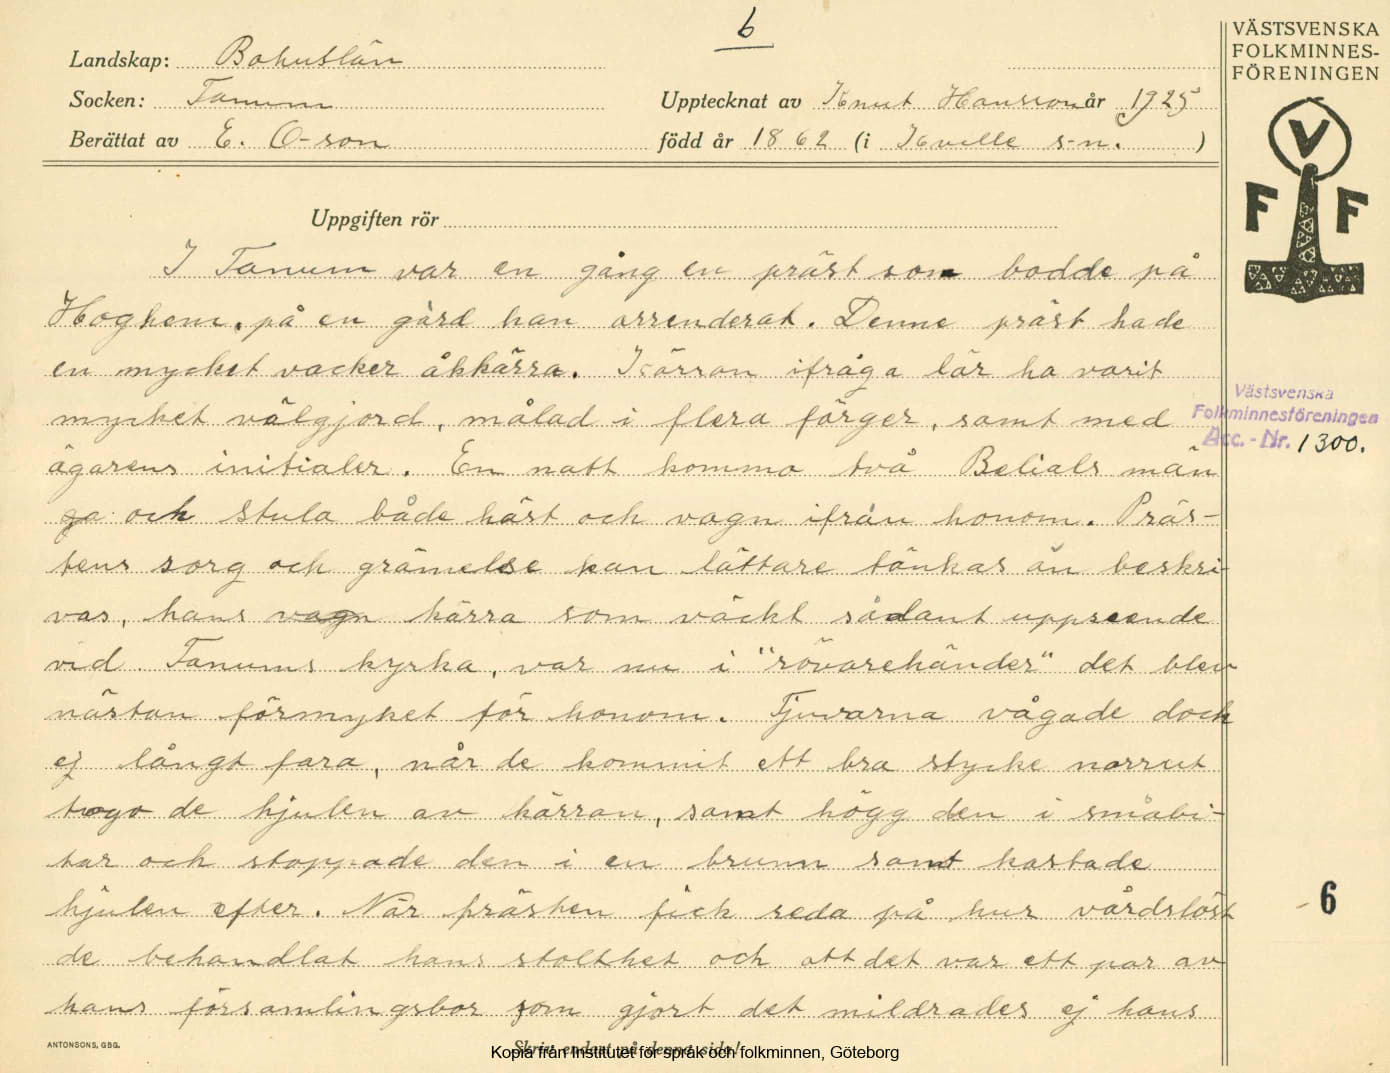 6
Landskap: Bohuslän
Socken: Tanum
Upptecknat av Knut Hansson år 1925
Berättat av E. O-son
född år 1862 (i Kville s-n. )
Uppgiften rör
I Tanum var en gång en präst som bodde på
Hoghem, på en gård han arrenderat. Denne präst hade
en mycket vacker åkkärra. Kärran ifråga lär ha varit
mycket välgjord, målad i flera färger, samt med
ägarens initialer. En natt komma två Belials män
ga och stula både häst och vagn ifrån honom. Präs-
tens sorg och grämelse kan lättare tänkas än beskri-
vas, hans vagn kärra som väckt sådant uppseende
vid Tanums kyrka, var nu i "rövarehänder" det blev
nästan förmyket för honom. Tjuvarna vågade dock
ej långt fara, når de kommit ett bra stycke norrut
togo de hjulen av kärran, samt högg den i småbi-
tar och stoppade den i en brunn samt kastade
hjulen efter. När prästen fick reda på hur vårdslöst
de behandlat hans stolthet och att det var ett par av
hans församlingsbor som gjort det mildrades ej hans
VÄSTSVENSKA
FOLKMINNES-
FÖRENINGEN
V
F F
Västsvenska
Folkminnesföreningen
Acc. - Nr. 1300.
6
ANTONSONS, GBG.
Skriv endast på denna sida!
Kopia från Institutet för språk och folkminnen, Göteborg